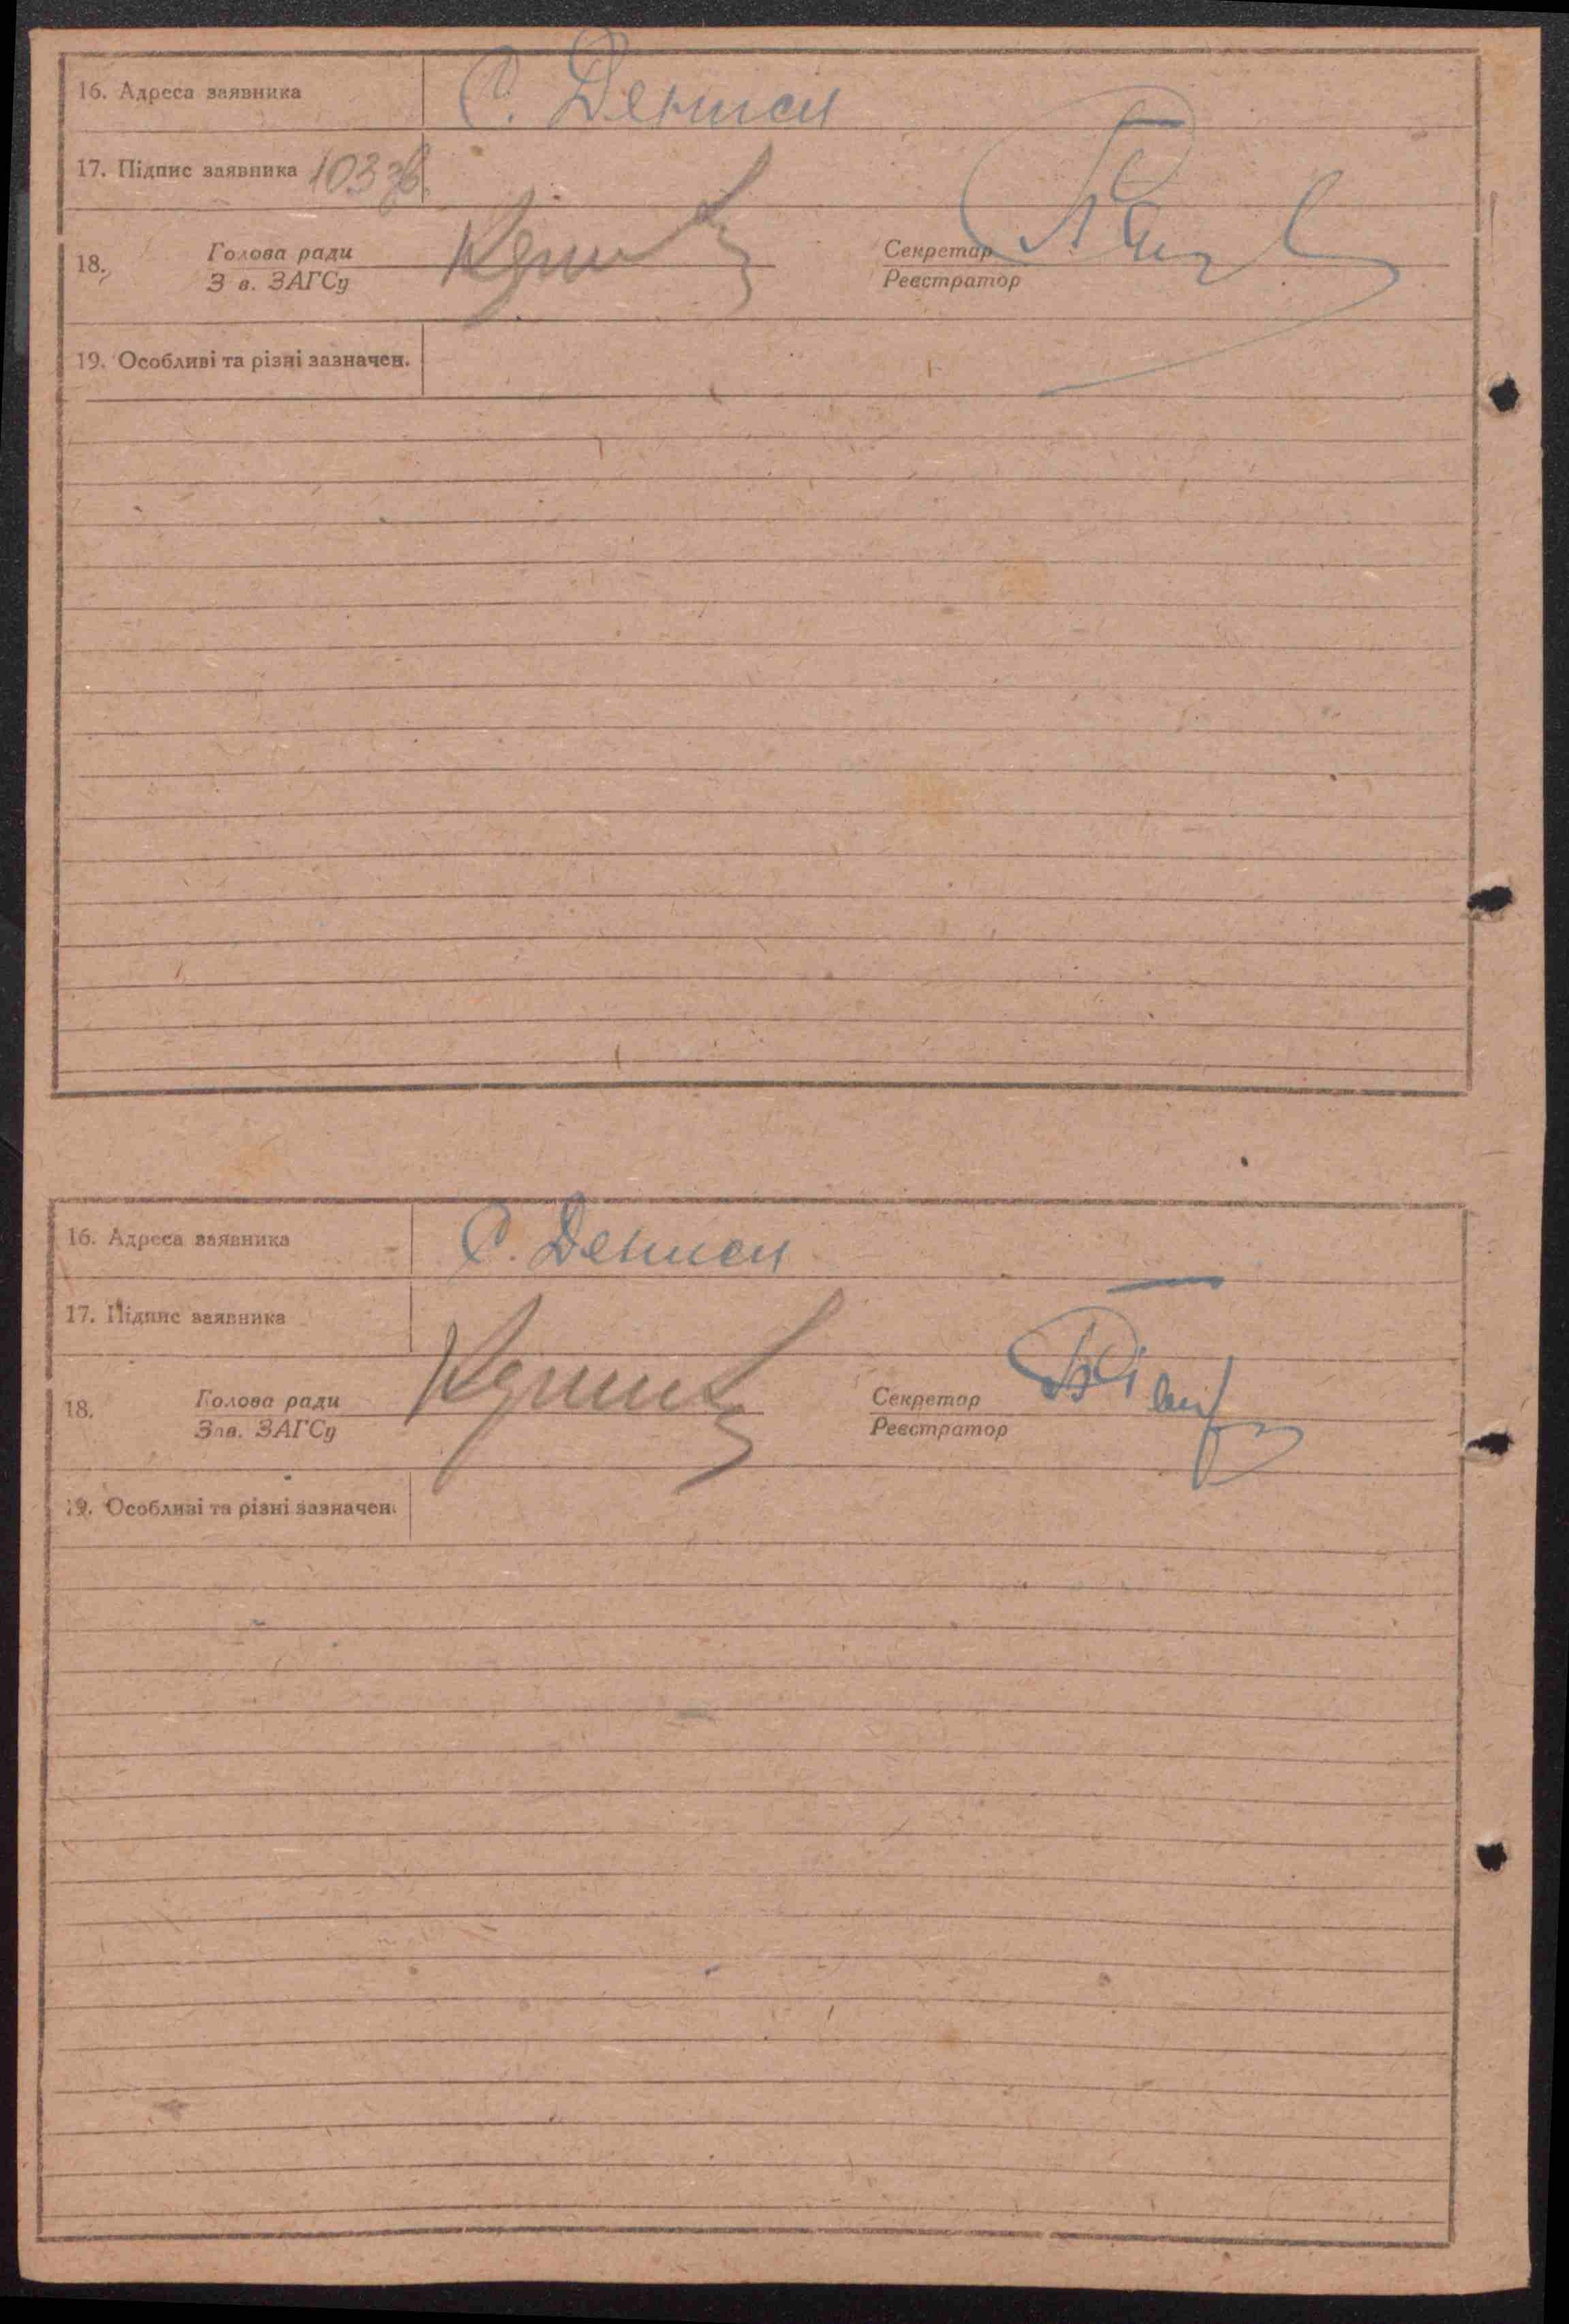 16. Адреса заявника С. Дениси
17. Підпис заявника 103 зв.
18. Голова ради Секретар
З в. ЗАГСу Реєстратор
19. Особливі та різні зазначен.
16. Адреса заявника С. Дениси
17. Підпис заявника
18. Голова ради Секретар
Зав. ЗАГСу Реєстратор
19. Особливі та різні зазначен.